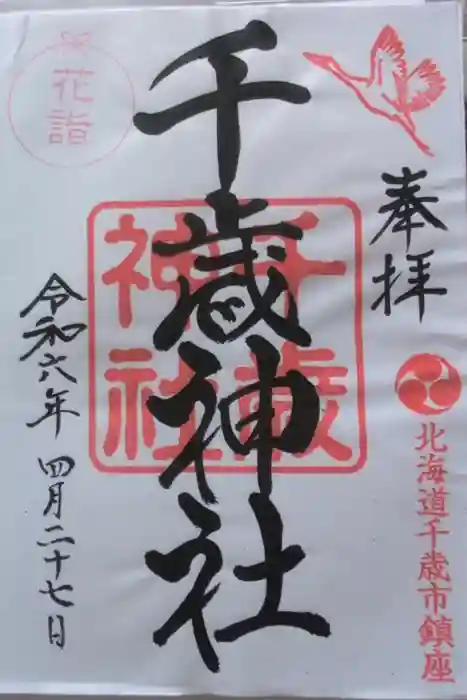 奉拝
北海道千歳市鎮座
千歳神社
千歳
神社
花詣
令和六年 四月二十七日